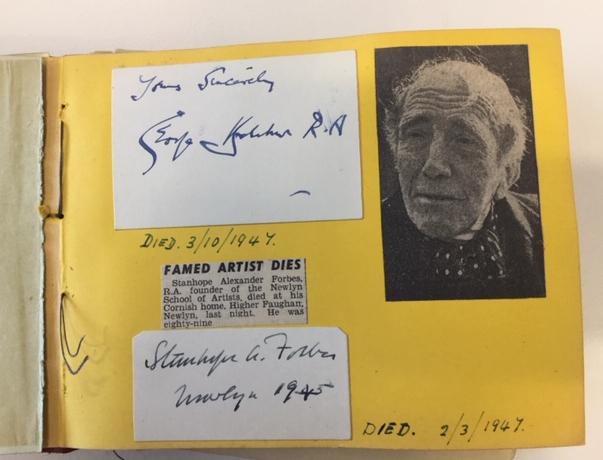 Yours Sincerely
George Belcher R.A
DIED. 3/10/1947.
FAMED ARTIST DIES
Stanhope Alexander Forbes,
R.A. founder of the Newlyn
School of Artists, died at his
Cornish home, Higher Faughan,
Newlyn, last night. He was
eighty-nine
Stanhope A. Forbes
Newlyn 1945
DIED. 2/3/1947.